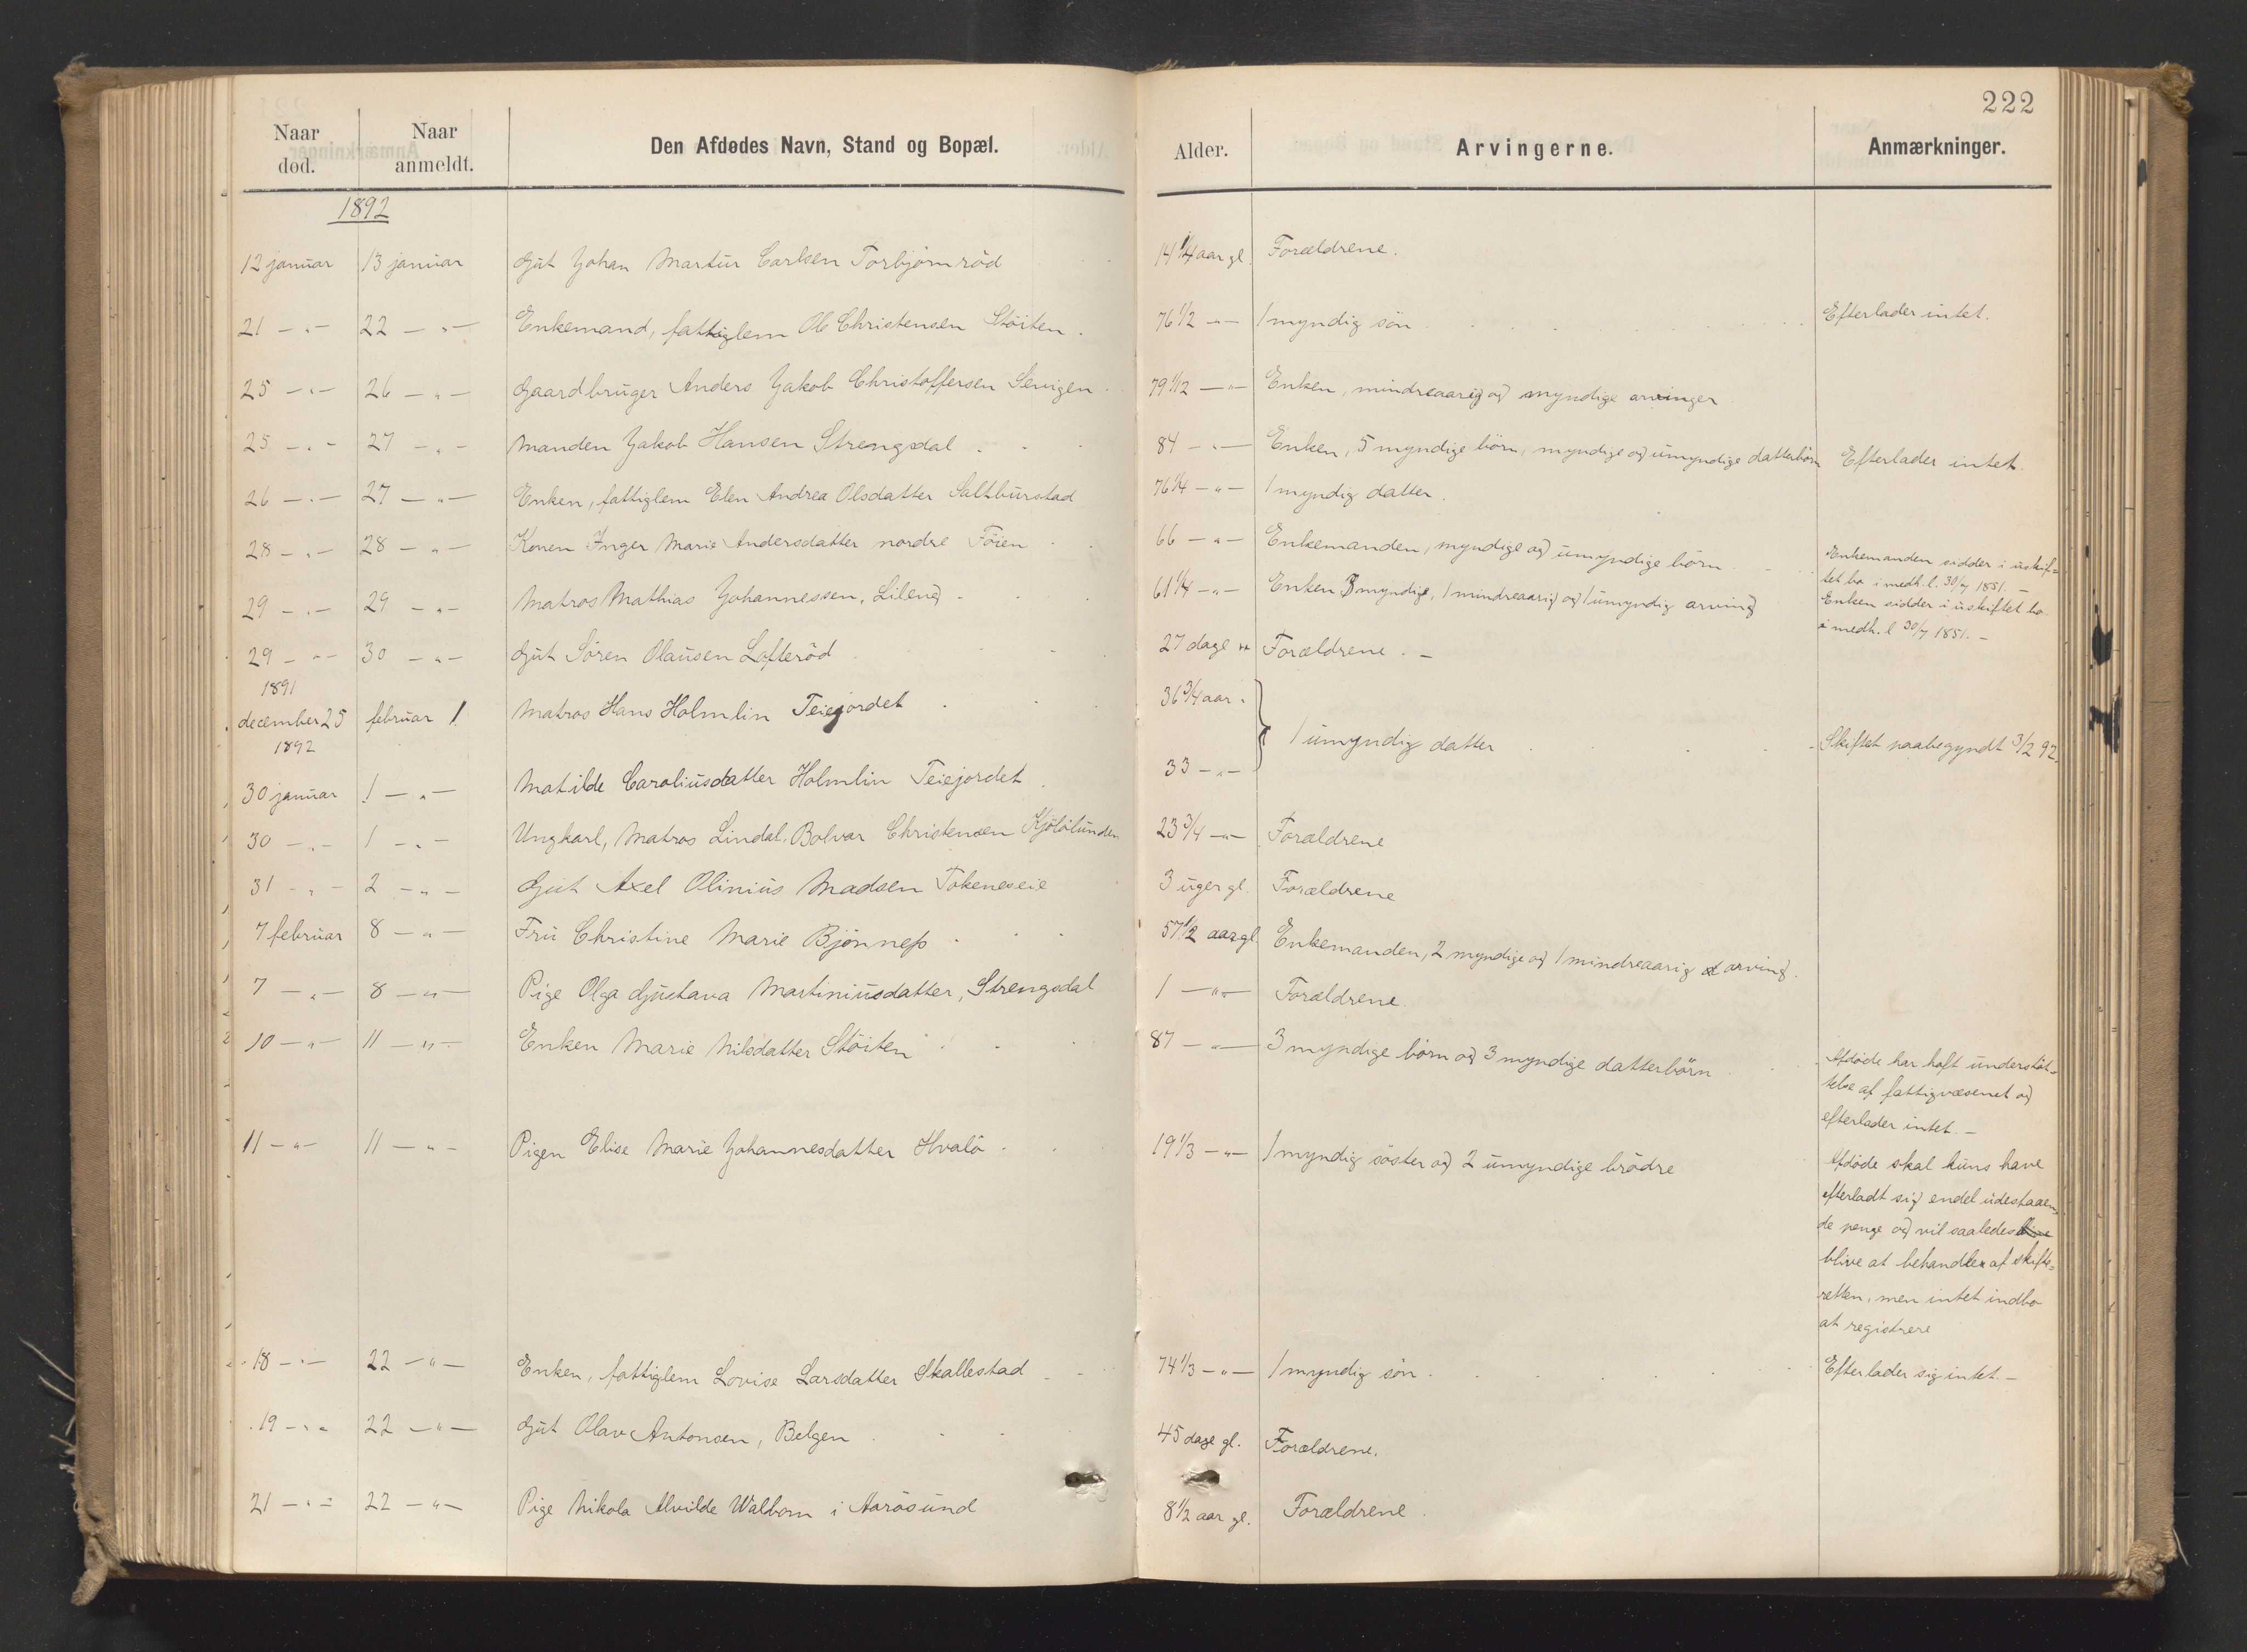 222
Naar død. Naar anmeldt. Den Afdødes Navn, Stand og Bopæl. Alder. Arvingerne. Anmærkninger.
1892
12 januar 13 januar Gut Johan Martin Carlsen Torbjørnrød 14 1/4 aar gl. Forældrene.
21 – " – 22 – " – Enkemand, fattiglem Ole Christensen Støiten. 76 1/2 – " – 1 myndig søn Efterlader intet.
25 – " – 26 – " – Gaardbruger Anders Jakob Christoffersen 79 1/12 – " – Enken, mindreaarig og myndige arvinger
25 – " – 27 – " – Manden Jakob Hansen Strengsdal 84 – " – Enken, 5 myndige børn, myndige og umyndige datterbørn Efterlader intet.
26 – " – 27 – " – Enken, fattiglem Elen Andrea Olsdatter Saltburstad 76 1/4 – " – 1 myndig datter.
28 – " – 28 – " – Konen Inger Marie Andersdatter nordre Føien 66 – " – Enkemanden, myndige og umyndige børn Enkemanden sidder i uskif=
tet bo i medh. l. 30/7 1851. –
29 – " – 29 – " – Matros Mathias Johannessen, Lileng 61 1/4 – " – Enken 3 myndige, 1 mindreaarig og 1 umyndig arving Enken sidder i uskiftet bo
i medh. l 30/7 1851. –
29 – " – 30 – " – Gut Søren Olausen Lofterød 27 dage " Forældrene. –
1891
december 25 februar 1 Matros Hans Holmlin Teiejordet 36 3/4 aar.
1892
1 umyndig datter Skiftet paabegyndt 3/2 92.
30 januar 1 – " – Matilde Caroliusdatter Holmlin Teiejordet 33 – " –
30 – " – 1 – " – Ungkarl, Matros Lindal Bolvar Christensen Kjølølunden 23 3/4 – " – Forældrene
31 – " – 2 – " – Gut Axel Olinius Madsen Tokeneseie 3 uger gl. Forældrene
7 februar 8 – " – Fru Christine Marie Bjønness 57 1/2 aar gl. Enkemanden, 2 myndige og 1 mindreaarig arving.
7 – " – 8 – " – Pige Olga Gustava Martiniusdatter, Strengsdal 1 – " – Forældrene.
10 – " – 11 – " – Enken Marie Nilsdatter Støiten 87 – " – 3 myndige børn og 3 myndige datterbørn Afdøde har haft understøt=
telse af fattigvæsenet og
efterlader intet. –
11 – " – 11 – " – Pigen Elise Marie Johannesdatter Hvalø 19 1/3 – " – 1 myndig søster og 2 umyndige brødre Afdøde skal kuns have
efterladt sig endel udestaaen=
de penge og vil saaledes
blive at behandles af skifte=
retten, men intet indbo
at registrere
18 – " – 22 – " – Enken, fattiglem Lovise Larsdatter Skallestad 74 1/3 – " – 1 myndig søn. Efterlader sig intet. –
19 – " – 22 – " – Gut Olav Antonsen, Belgen 45 dage gl. Forældrene.
21 – " – 22 – " – Pige Nikola Alvilde Walbom i Aarøsund 8 1/2 aar gl. Forældrene.